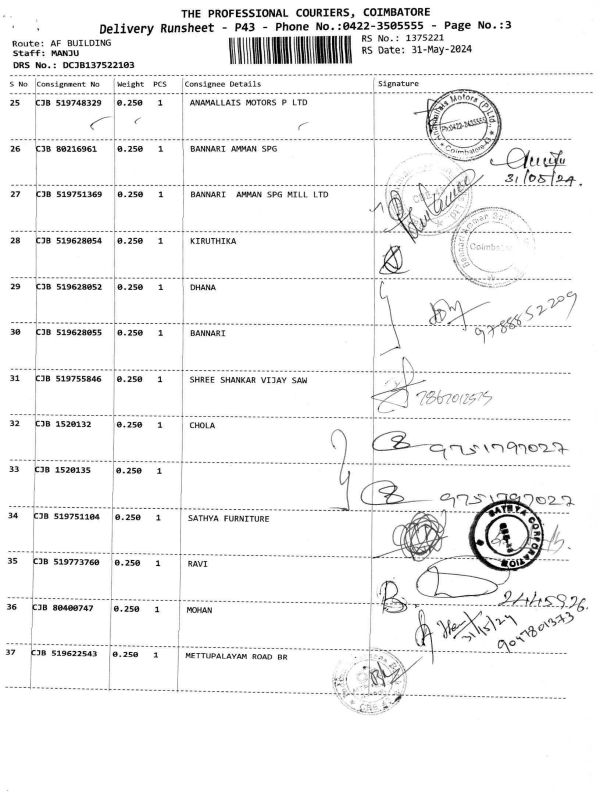 THE PROFESSIONAL COURIERS, COIMBATORE
Delivery Runsheet - P43 - Phone No.:0422-3505555 - Page No.:3
Route: AF BUILDING
RS No.: 1375221
Staff: MANJU
RS Date: 31-May-2024
DRS No.: DCJB137522103
S No Consignment No Weight PCS Consignee Details Signature
25 CJB 519748329 0.250 1 ANAMALLAIS MOTORS P LTD
Anamallais Motors (P) Ltd.,
Coimbatore
26 CJB 80216961 0.250 1 BANNARI AMMAN SPG
31/05/24.
27 CJB 519751369 0.250 1 BANNARI AMMAN SPG MILL LTD
28 CJB 519628054 0.250 1 KIRUTHIKA
Coimbatore
29 CJB 519628052 0.250 1 DHANA
9788852209
30 CJB 519628055 0.250 1 BANNARI
31 CJB 519755846 0.250 1 SHREE SHANKAR VIJAY SAW
32 CJB 1520132 0.250 1 CHOLA
9751797027
33 CJB 1520135 0.250 1
9751797027
34 CJB 519751104 0.250 1 SATHYA FURNITURE
SATHYA CORPORATION
35 CJB 519773760 0.250 1 RAVI
36 CJB 80400747 0.250 1 MOHAN
9047801373
37 CJB 519622543 0.250 1 METTUPALAYAM ROAD BR